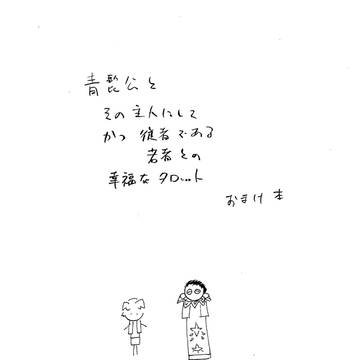 青髭公と
その主人にして
かつ従者である
若者との
幸福なタロット
おまけ本